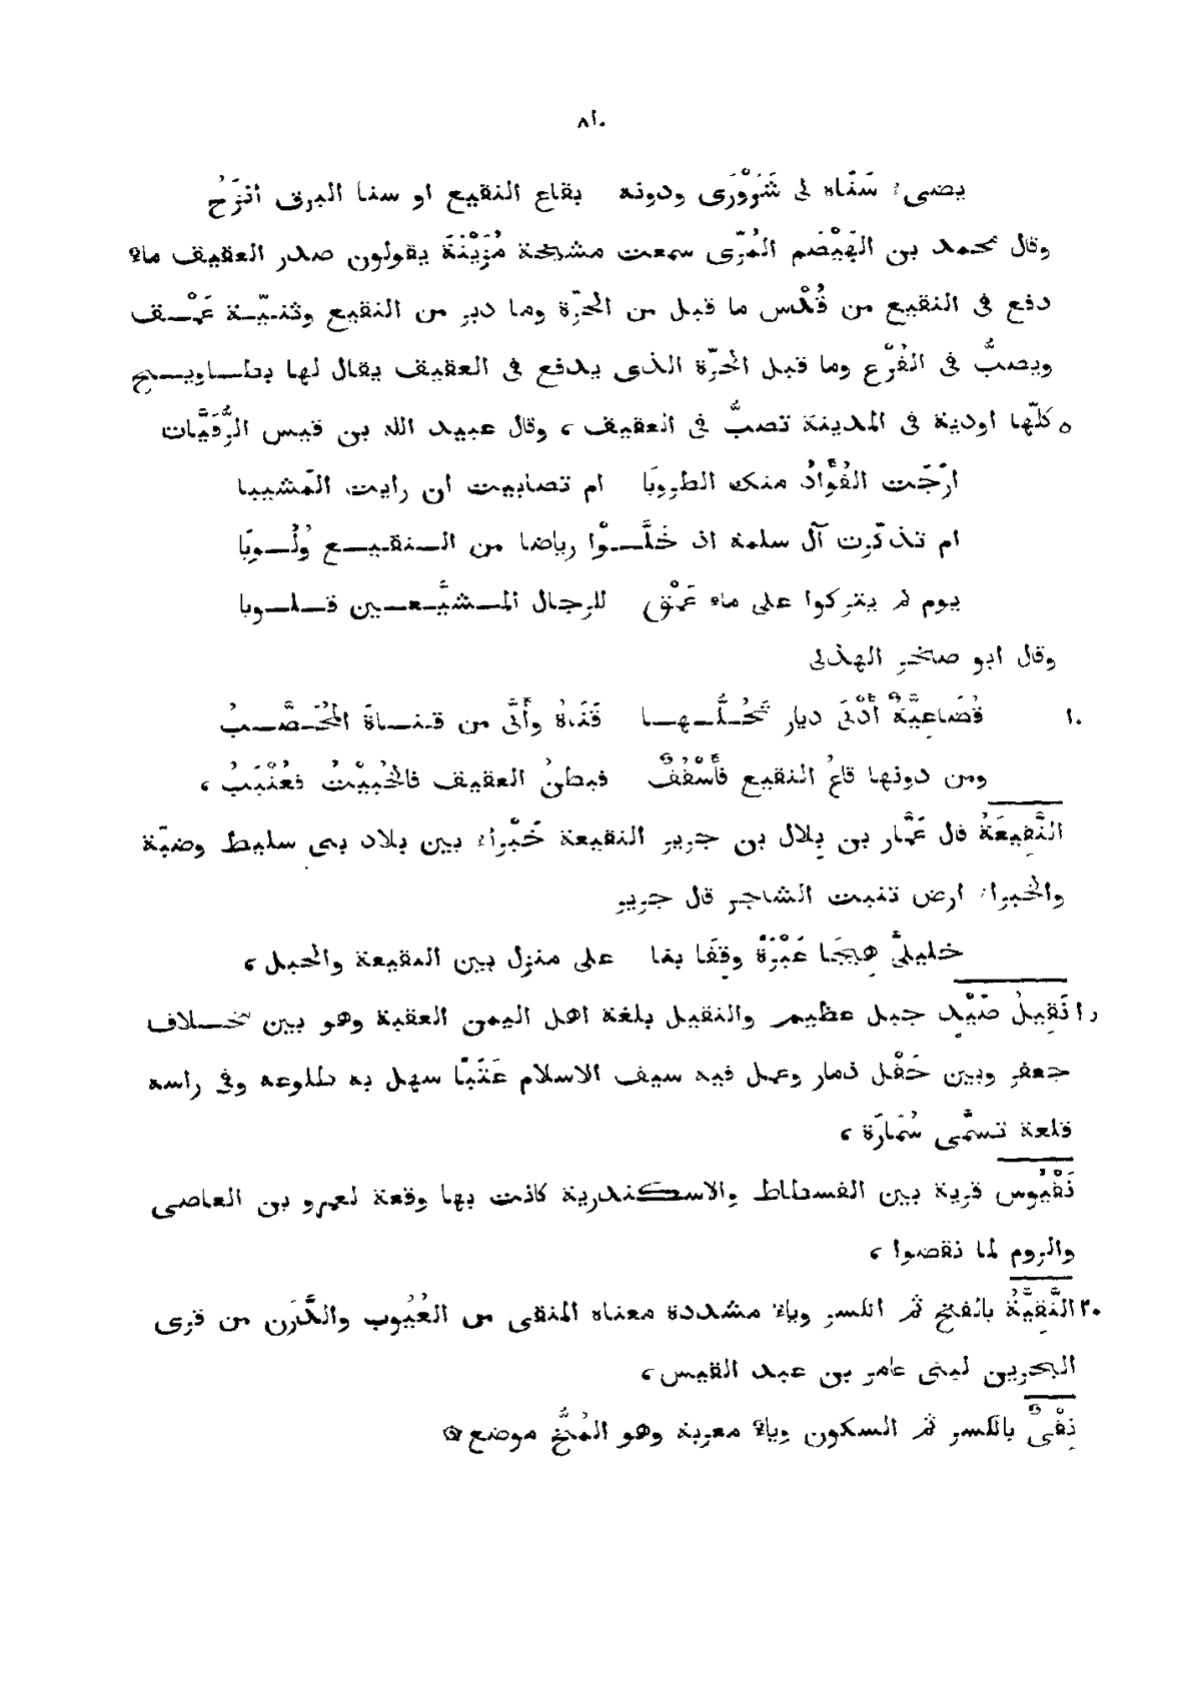 ٨١٠
يضىء سَنَاه لى شَرَوْرَى ودونه بقاع النقيع او سنا البرق انزَحُ
وقال محمد بن الهَيْضَم المُرّى سمعت مشيخة مُزَيْنَةَ يقولون صدر العقيق ماء
دفع فى النقيع من قُدْس ما قبل من الحَرّة وما دبر من النقيع وثنيّة عَمْق
ويصبُّ فى الفُرْع وما قبل الحَرّة الذى يدفع فى العقيق يقال لها بطاويح
٥ كلّها اودية فى المدينة تصبُّ فى العقيق، وقال عبيد الله بن قيس الرُّقَيَّات
ارَّجَت الفُؤَادُ منك الطروبَا ام تصابيت ان رايت المَشيبا
ام تذكّرت آل سلمة اذ خَلَّوْا رياضا من النقيع ولُوبَا
يوم لم يتركوا على ماء عَمْق للرجال المشيَّعين قلوبا
وقال ابو صخر الهذلى
١٠ قُضَاعِيَّةٌ أَدْنَى ديار تَحُلُّها قَنَاةُ وأَنَّى من قناةَ المُحَصَّبُ
ومن دونها قاعُ النقيع فأَسْقُفٌ فبطنُ العقيق فالخُبَيْتُ فعُنْبَبُ،
النَّقِيعَةُ قال عَمَّار بن بِلال بن جرير النقيعة خَبْراء بين بلاد بنى سليط وضبّة
والخبراء ارض تنبت الشاجر قال جرير
خليلىَّ هِيجَا عَبْرَةً وقِفَا بِنا على منزل بين النقيعة والحبل،
١٥ نَقِيلُ صَيْدٍ جبل عظيم والنقيل بلغة اهل اليمن العقبة وهو بين مخلاف
جعفر وبين حَقْل ذمار وعمل فيه سيف الاسلام عَتَبًا سهل به طلوعه وفى راسه
قلعة تسمّى سُمَارَة،
نَقْيُوس قرية بين الفسطاط والاسكندرية كانت بها وقعة لعمرو بن العاصى
والروم لما نقضوا،
٢٠ النَّقِيَّةُ بالفتح ثم الكسر وياء مشددة معناه المنقى من العُيُوب والدَّرَن من قرى
البحرين لبنى عامر بن عبد القيس،
نِقْىٌ بالكسر ثم السكون وياء معربة وهو المُخُّ موضع ۞